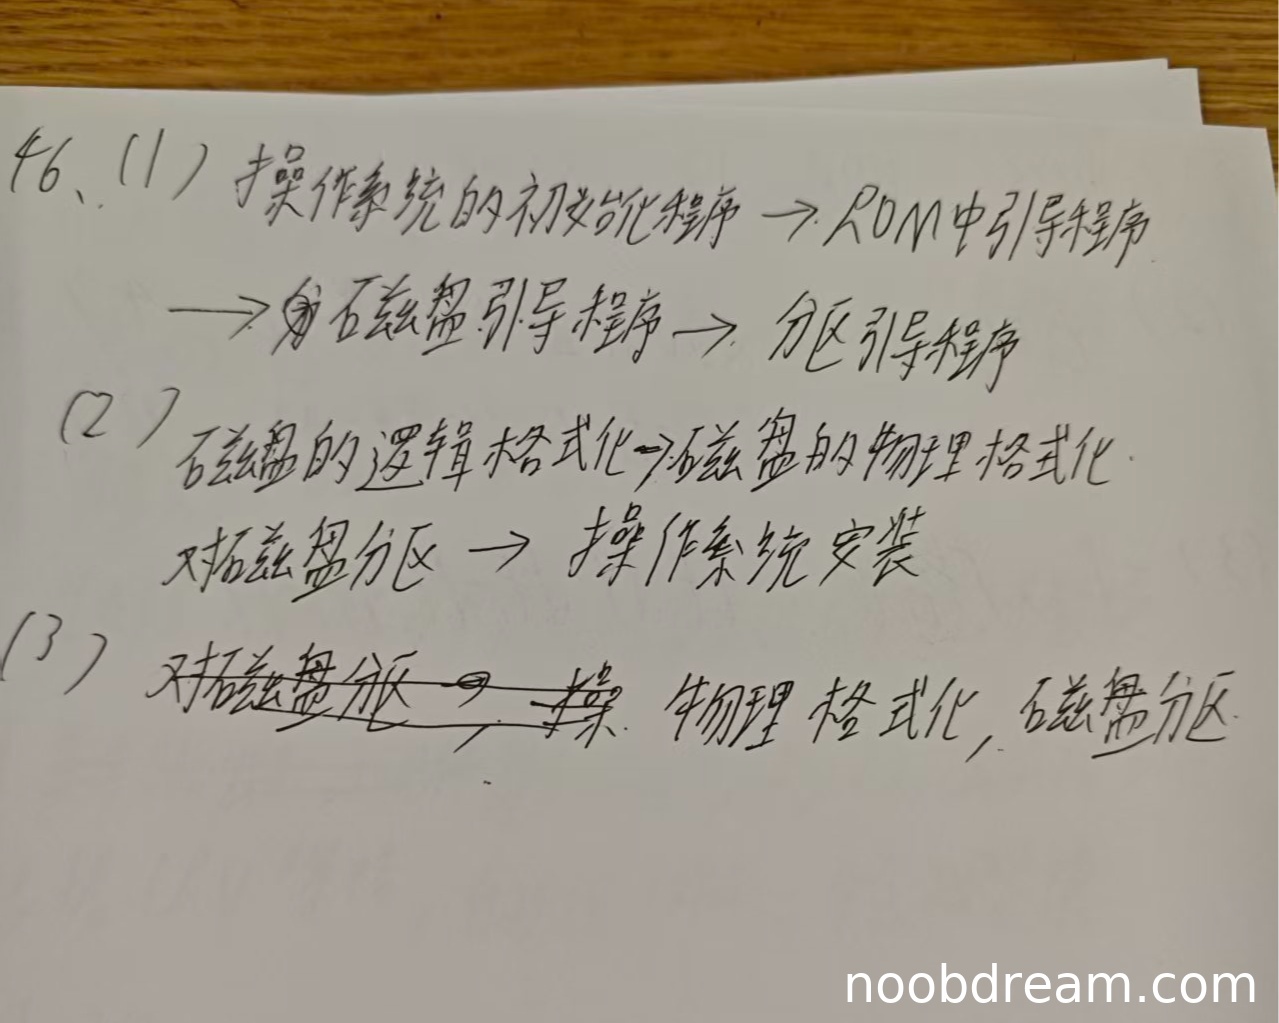 46、(1) 操作系统的初始化程序 → ROM中引导程序
→ 磁盘引导程序 → 分区引导程序
(2) 磁盘的逻辑格式化→磁盘的物理格式化.
对磁盘分区 → 操作系统安装
(3) 对磁盘分区 → 操 物理格式化, 磁盘分区.
noobdream.com